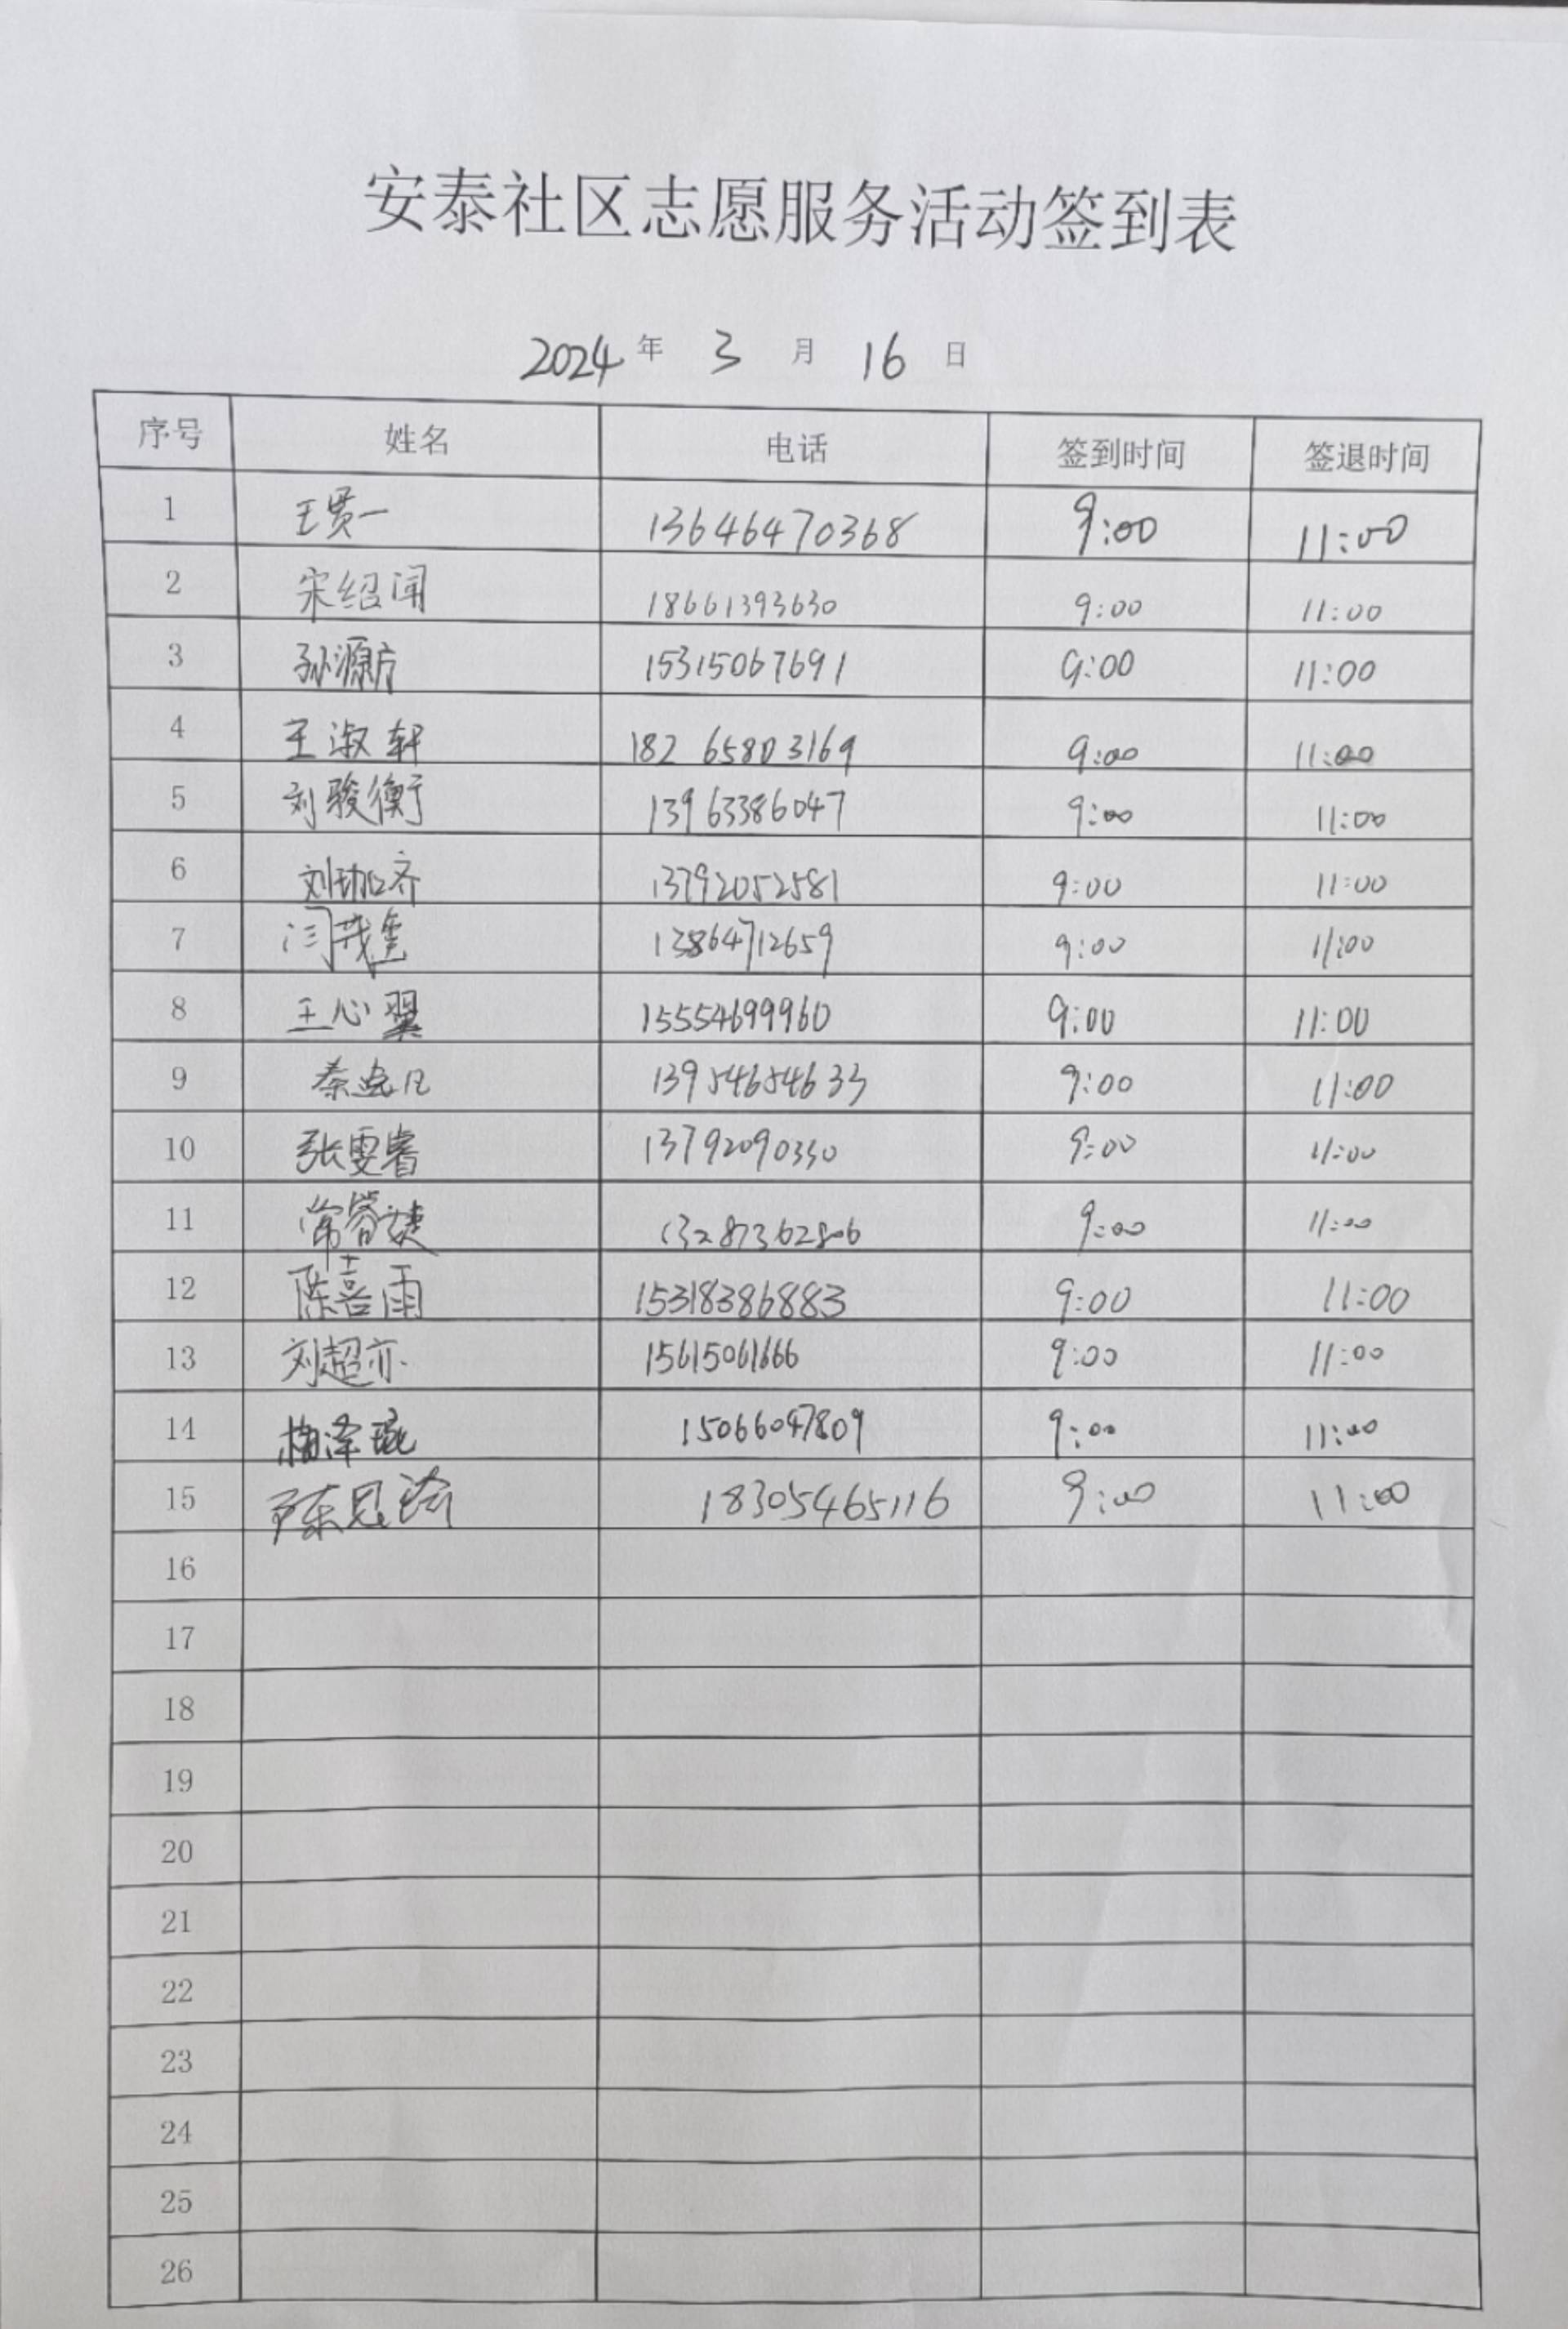 安泰社区志愿服务活动签到表
2024 年 3 月 16 日
序号 姓名 电话 签到时间 签退时间
1 王贤一 13646470368 9:00 11:00
2 宋绍闻 18661393630 9:00 11:00
3 孙源方 15315067691 9:00 11:00
4 王淑轩 182 65803169 9:00 11:00
5 刘骏衡 13963386047 9:00 11:00
6 刘珈齐 13792052581 9:00 11:00
7 闫茂 13864712659 9:00 11:00
8 王心翼 15554699960 9:00 11:00
9 秦 凡 13954654633 9:00 11:00
10 张雯睿 13792090330 9:00 11:00
11 常睿婕 13287362806 9:00 11:00
12 陈喜雨 15318386883 9:00 11:00
13 刘超亦 15615061666 9:00 11:00
14 梅泽琨 15066047809 9:00 11:00
15 陈思 18305465116 9:00 11:00
16
17
18
19
20
21
22
23
24
25
26